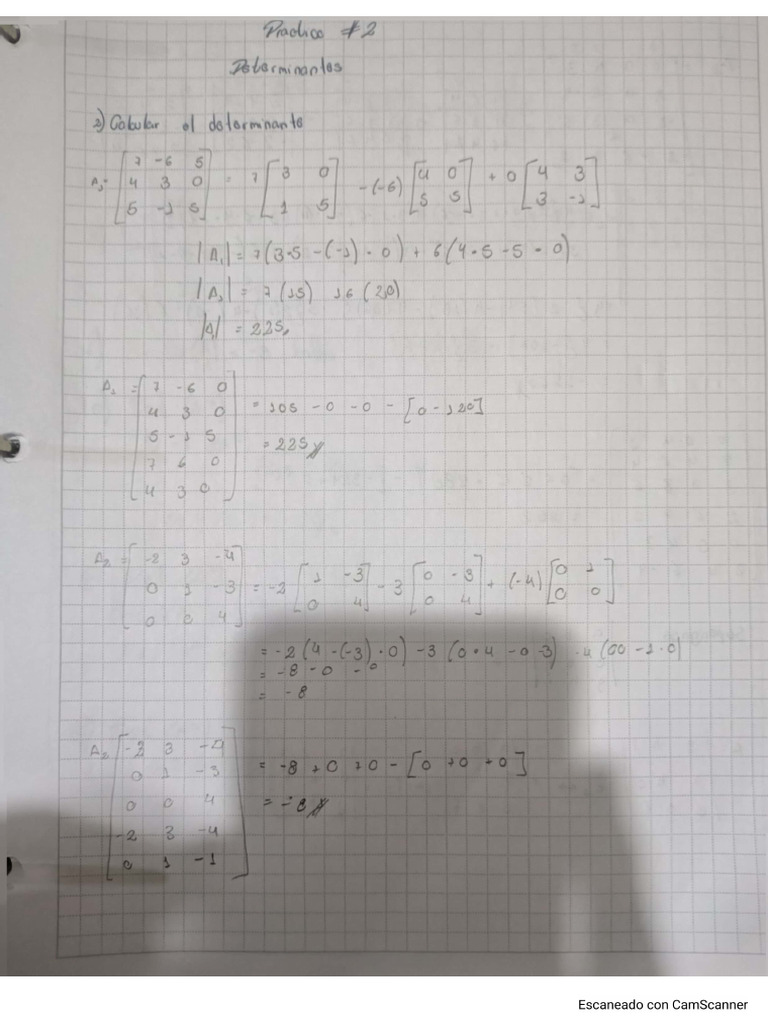 Practico #2
Determinantes
2) Calcular el determinante
A₁= [7 -6 5; 4 3 0; 5 -1 5] = 7 [3 0; 1 5] -(-6) [4 0; 5 5] + 0 [4 3; 3 -1]
|A₁| = 7(3·5 -(-1)·0) + 6(4·5 -5·0)
|A₁| = 7(15) 16(20)
|A| = 225
A₁ = [7 -6 0; 4 3 0; 5 -1 5; 7 6 0; 4 3 0] = 105 -0 -0 - [0 -120]
= 225
A₂ = [-2 3 -4; 0 1 -3; 0 0 4] = -2 [1 -3; 0 4] -3 [0 -3; 0 4] + (-4) [0 1; 0 0]
= -2 (4 -(-3)·0) -3 (0·4 -0-3) ·4 (00 -1·0)
= -8 -0 -0
= -8
A₂ [-2 3 -4; 0 1 -3; 0 0 4; -2 3 -4; 0 1 -1] = -8 +0 +0 - [0 +0 +0]
= -8
Escaneado con CamScanner